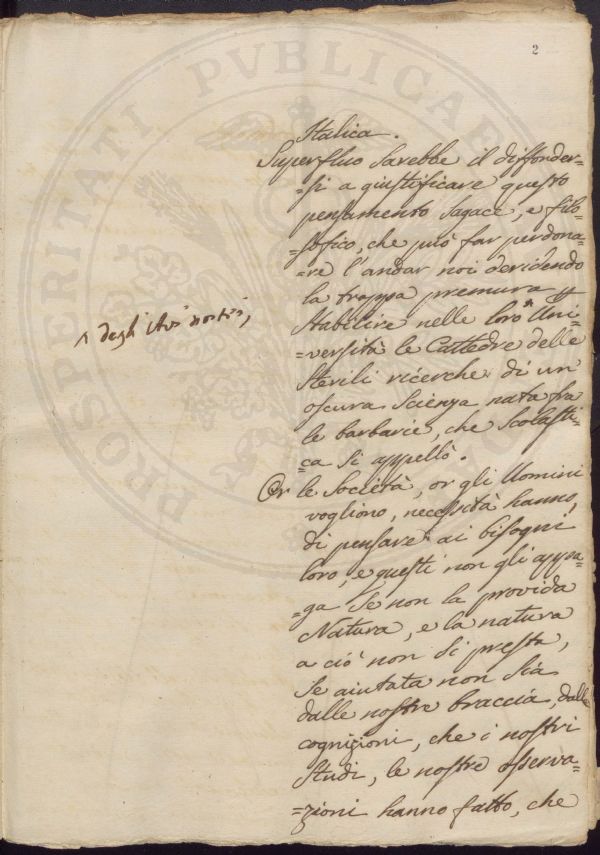 2
Italica.
Superfluo sarebbe il diffonder=
=si a giustificare questo
pensamento sagace, e filo=
=sofico, che può far perdona=
=re l'andar noi deridendo
la troppa premura
stabilire nelle loro ^ Uni=
^ degli Avi nostri,
=versità le Cattedre delle
sterili ricerche di un'
oscura Scienza nata fra
le barbarie, che Scolasti=
=ca si appellò.
Or le Società, or gli Uomini
vogliono, necessità hanno,
di pensare ai bisogni
loro, e questi non gli appa=
=ga se non la provida
Natura, e la natura
a ciò non si presta,
se aiutata non sia
dalle nostre braccia, dalle
cognizioni, che i nostri
studi, le nostre osserva=
=zioni hanno fatto, che
PROSPERITATI PVBLICAE